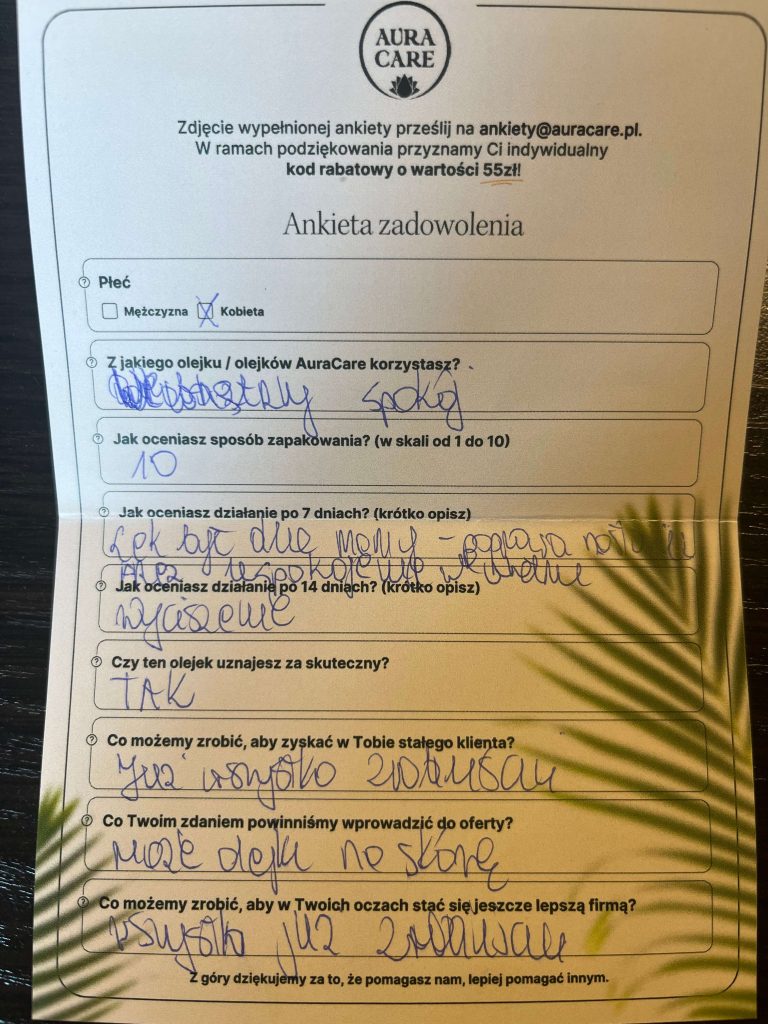 AURA
CARE
Zdjęcie wypełnionej ankiety prześlij na ankiety@auracare.pl.
W ramach podziękowania przyznamy Ci indywidualny
kod rabatowy o wartości 55zł!
Ankieta zadowolenia
Płeć
Mężczyzna Kobieta
Z jakiego olejku / olejków AuraCare korzystasz?
spokój
Jak oceniasz sposób zapakowania? (w skali od 1 do 10)
10
Jak oceniasz działanie po 7 dniach? (krótko opisz)
Lek był dla mamy - poprawa
uspokojenie
Jak oceniasz działanie po 14 dniach? (krótko opisz)
wyciszenie
Czy ten olejek uznajesz za skuteczny?
TAK
Co możemy zrobić, aby zyskać w Tobie stałego klienta?
Już wszystko
Co Twoim zdaniem powinniśmy wprowadzić do oferty?
Może olejki na skórę
Co możemy zrobić, aby w Twoich oczach stać się jeszcze lepszą firmą?
wszystko już
Z góry dziękujemy za to, że pomagasz nam, lepiej pomagać innym.